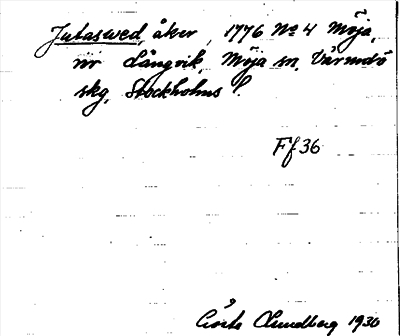 Jutaswed, åker, 1776 No 4 Möja,
nr Långvik, Möja sn, Värmdö
skg, Stockholms l.
Ff 36
Lundberg 1936